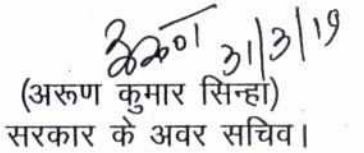 31/3/19
(अरूण कुमार सिन्हा)
सरकार के अवर सचिव।